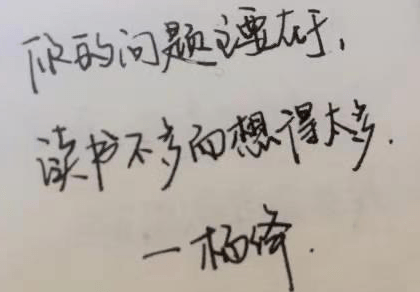 你的问题主要在于,
读书不多而想得太多.
一杨绛.